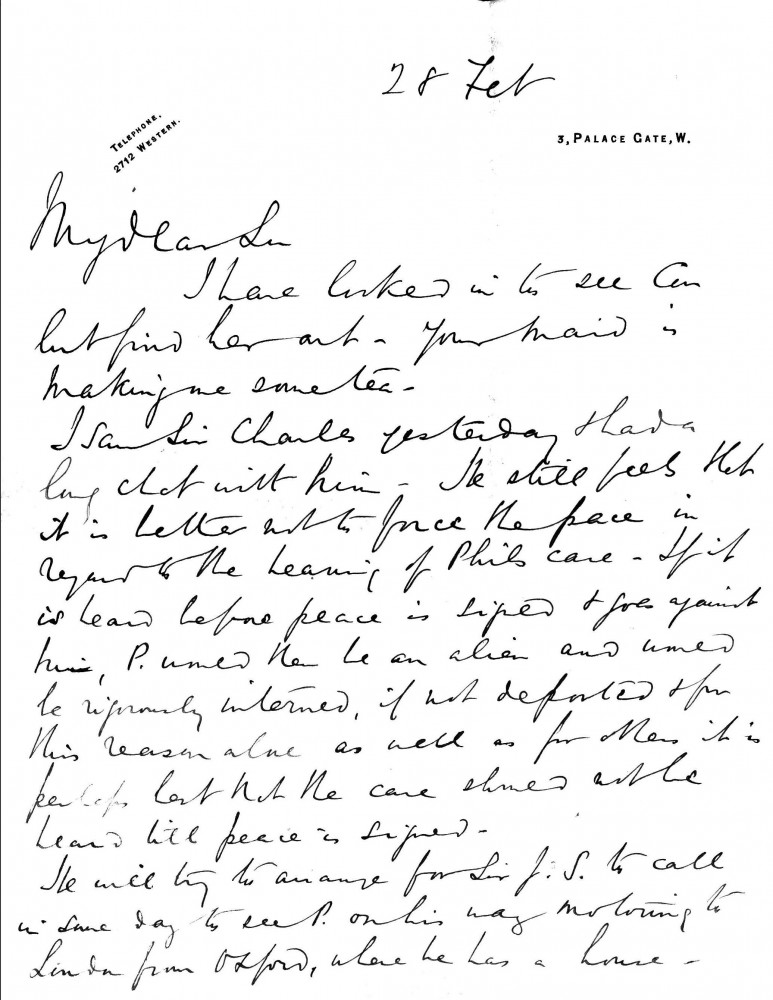 28 Feb
TELEPHONE.
2712 WESTERN.
3, PALACE GATE, W.
My dear Sir
I have looked in to see
but find her out - Your maid is
making me some tea -
I saw Sir Charles yesterday & had a
long chat with him - He still feels that
it is better not to force the pace in
regard to the hearing of Phils case - If it
is heard before peace is signed & goes against
him, P. would then be an alien and would
be rigorously interned, if not deported & for
this reason alone as well as for others it is
perhaps best that the case should not be
heard till peace is signed -
He will try to arrange for Sir J. S. to call
in some day to see P. on his way motoring to
London from Oxford, where he has a house -